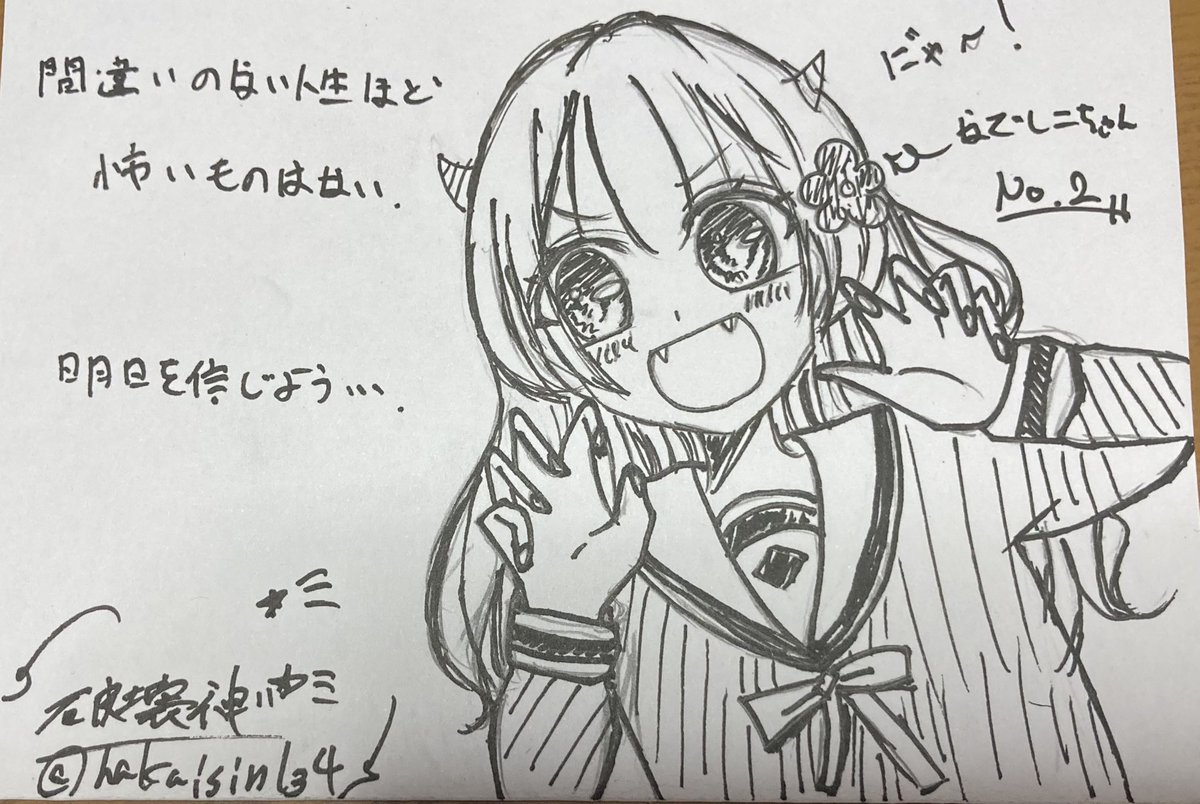 間違いのない人生ほど
怖いものはない.
明日を信じよう….
にゃ〜!
なでしこちゃん
No.2
@hakaisin134